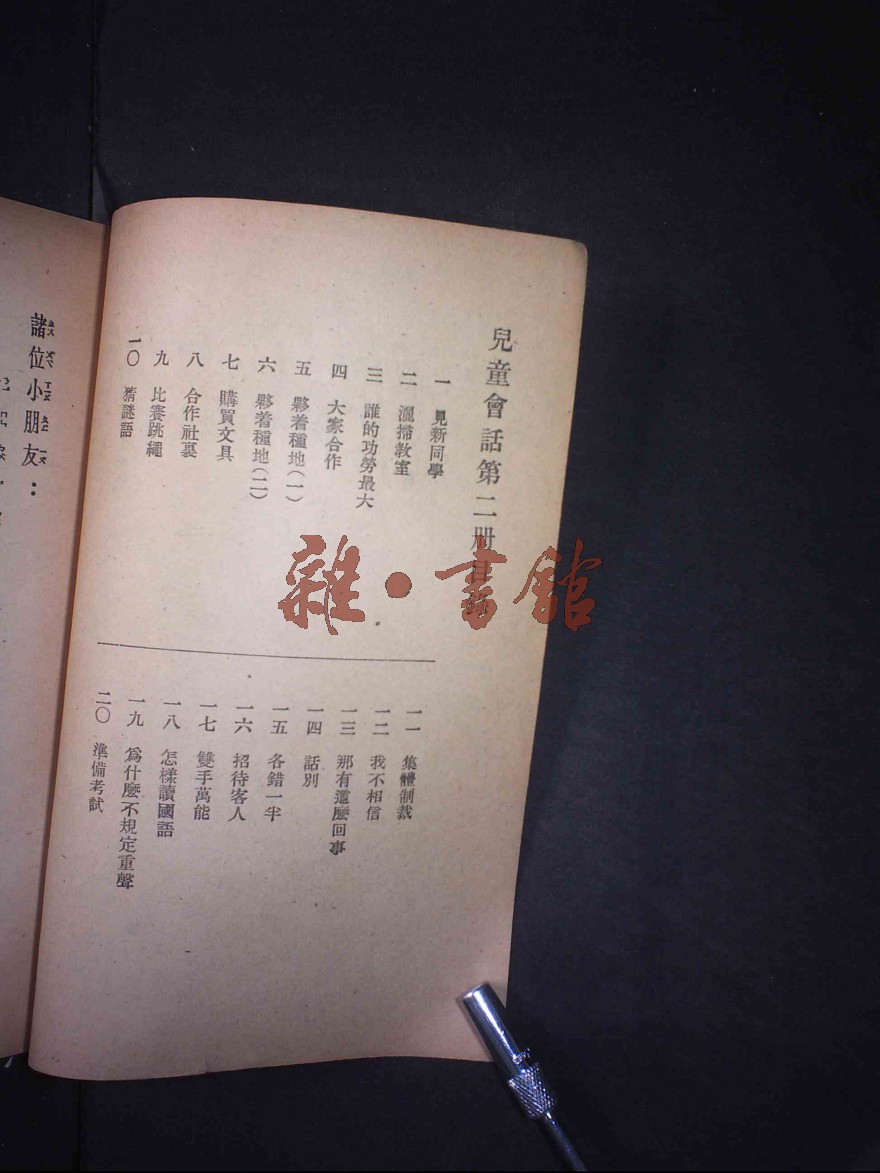 兒童會話第二册目
一 見新同學
二 灑掃教室
三 誰的功勞最大
四 大家合作
五 夥着種地(一)
六 夥着種地(二)
七 購買文具
八 合作社裏
九 比賽跳繩
一〇 猜謎語
一一 集體制裁
一二 我不相信
一三 那有這麼回事
一四 話別
一五 各錯一半
一六 招待客人
一七 雙手萬能
一八 怎樣讀國語
一九 爲什麼不規定重聲
二〇 準備考試
諸位小朋友：
雜·書館